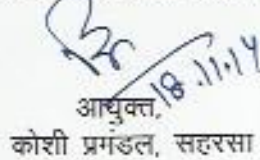 18.11.14
आयुक्त,
कोशी प्रमंडल, सहरसा